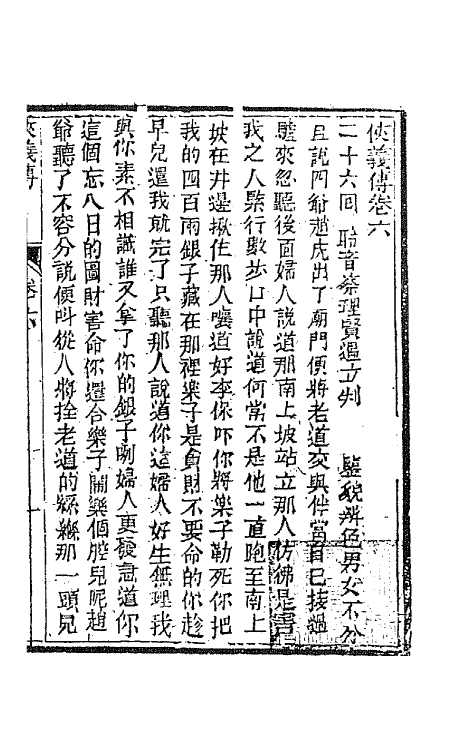 俠義傳卷六
二十六回　聆音察理賢愚立判　鑒貌辨色男女不分
且說四爺趙虎出了廟門便將老道交與伴當自己接過
驢來忽聽後面婦人說道那南上坡站立那人彷彿是害
我之人緊行數步口中說道何嘗不是他一直跑至南上
坡在井邊揪住那人嚷道好李保吓你將樂子勒死你把
我的四百兩銀子藏在那裡樂子是貪財不要命的你趁
早兒還我就完了只聽那人說道你這婦人好生無理我
與你素不相識誰又拿了你的銀子咧婦人更發急道你
這個忘八日的圖財害命你還合樂子鬧這個腔兒呢趙
爺聽了不容分說便叫從人將拴老道的絲縧那一頭兒
俠義傳　卷六